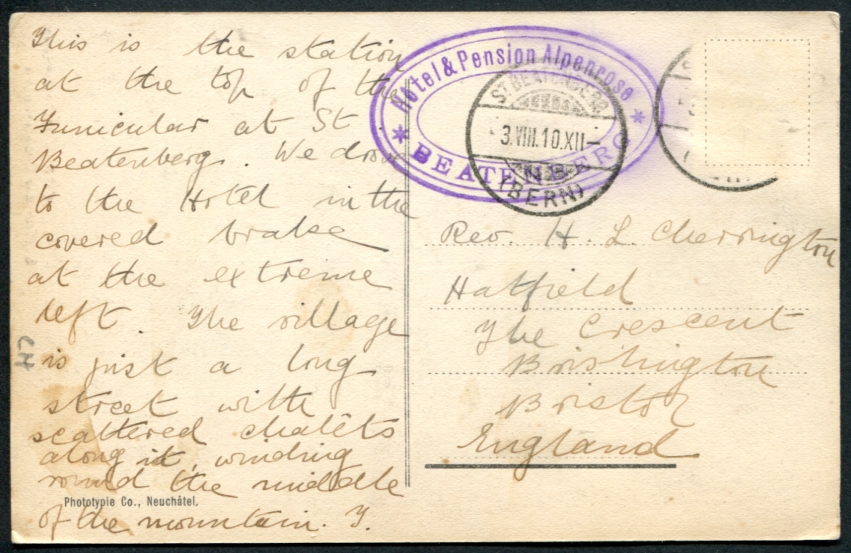 This is the station
at the top of the
Funicular at St.
Beatenberg. We drove
to the Hotel in the
covered brake
at the extreme
left. The village
is just a long
street with
scattered chalêts
along it, winding
round the middle
of the mountain. Y.
Phototypie Co., Neuchâtel.
LH
Hôtel & Pension Alpenrose
* BEATENBERG *
ST BEATENBERG
3.VIII.10.XII-
(BERN)
Rev. H. L. Cherrington
Hatfield
The Crescent
Brislington
Bristol
England